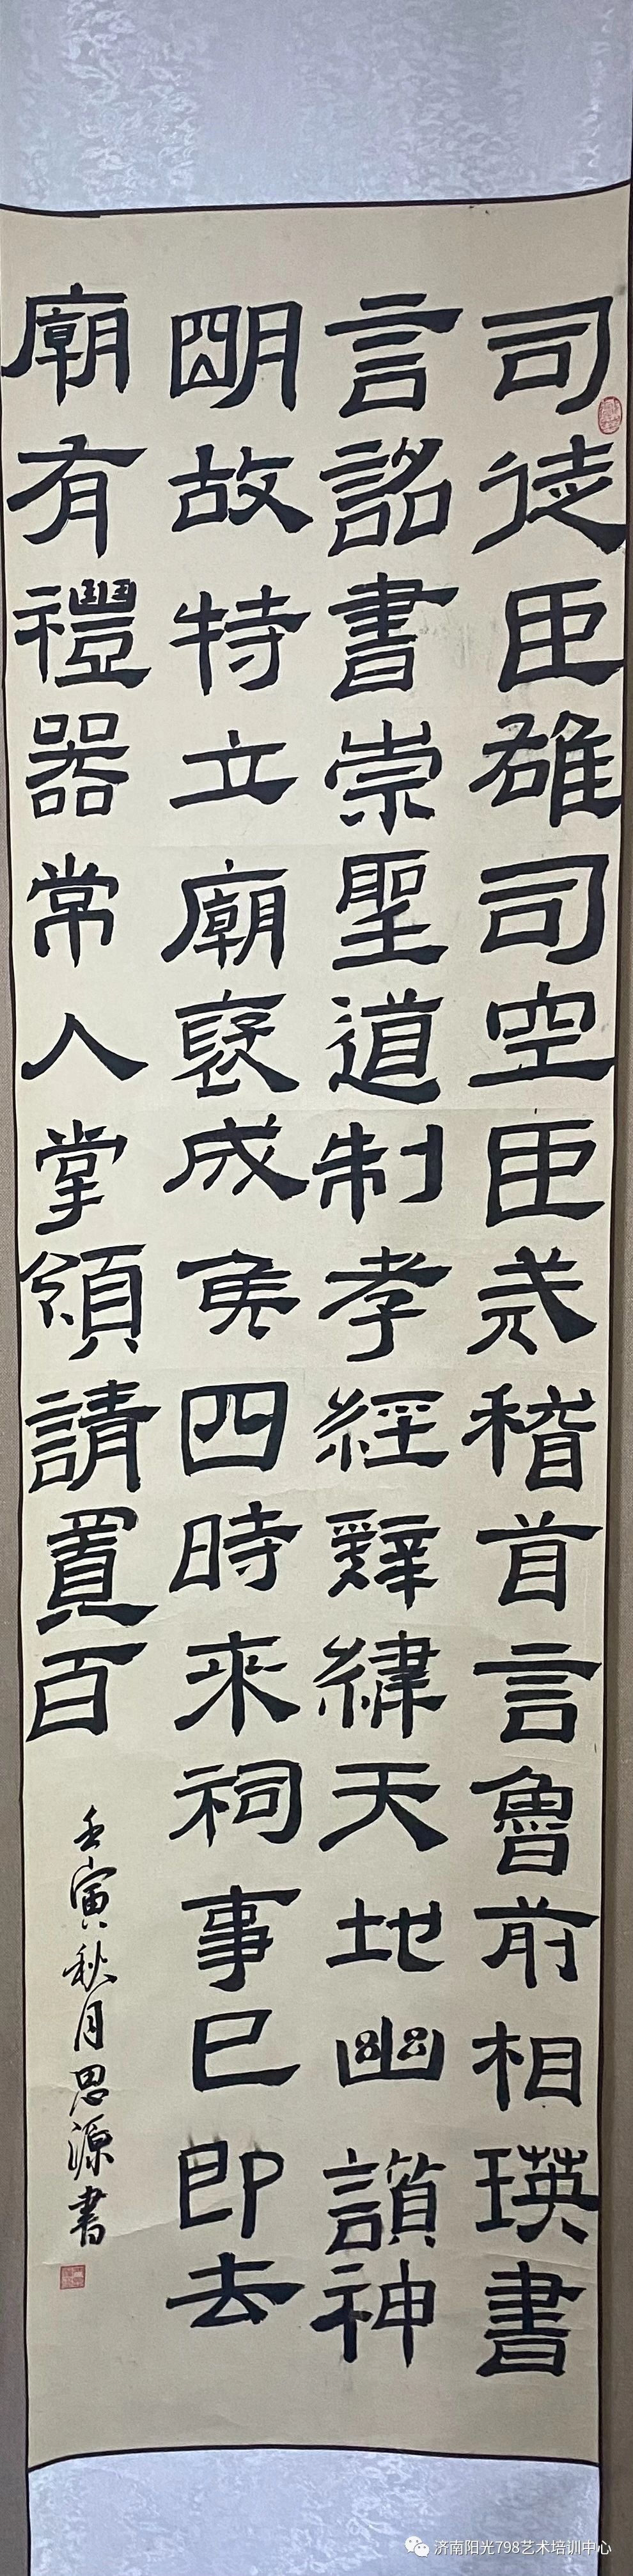 司徒臣雄司空臣戒稽首言魯前相瑛書
言詔書崇聖道制孝經辭律天地幽讃神
明故特立廟褒成侯四時來祠事已即去
廟有禮器常人掌領請置百
壬寅秋月思源書
济南阳光798艺术培训中心